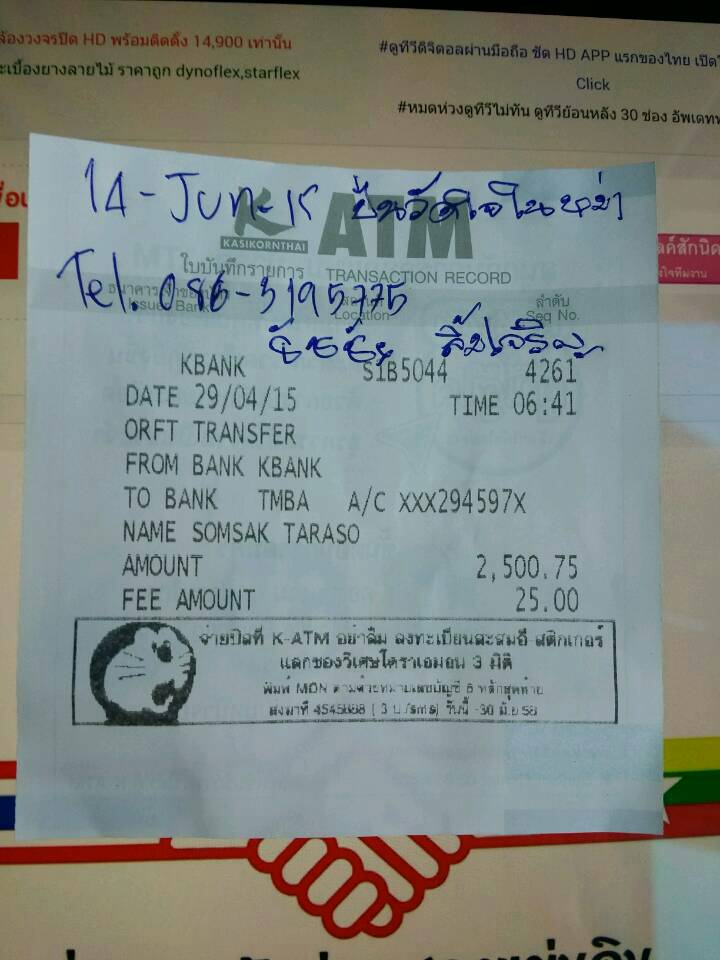 ล้องวงจรปิด HD พร้อมติดตั้ง 14,900 เท่านั้น
ะเบื้องยางลายไม้ ราคาถูก dynoflex,starflex
#ดูทีวีดิจิตอลผ่านมือถือ ชัด HD APP แรกของไทย เปิดใ
Click
#หมดห่วงดูทีวีไม่ทัน ดูทีวีย้อนหลัง 30 ช่อง อัพเดททุ
14-Jun-15 ปั่นวัดใจในหมู่
KASIKORNTHAI ATM
ใบบันทึกรายการ TRANSACTION RECORD
Tel. 086-3195775
ธนาคาร Issuer Bank Location ลำดับ Seq No.
ลิ้มเจริญ
KBANK S1B5044 4261
DATE 29/04/15 TIME 06:41
ORFT TRANSFER
FROM BANK KBANK
TO BANK TMBA A/C XXX294597X
NAME SOMSAK TARASO
AMOUNT 2,500.75
FEE AMOUNT 25.00
จ่ายบิลที่ K-ATM อย่าลืม ลงทะเบียนสะสมอี สติกเกอร์
แลกของวิเศษโดราเอมอน 3 มิติ
พิมพ์ MDN ตามด้วยหมายเลขบัญชี 6 หลักสุดท้าย
ส่งมาที่ 4545888 ( 3 บ./sms) วันนี้ -30 มิ.ย 58
ลค์สักนิด